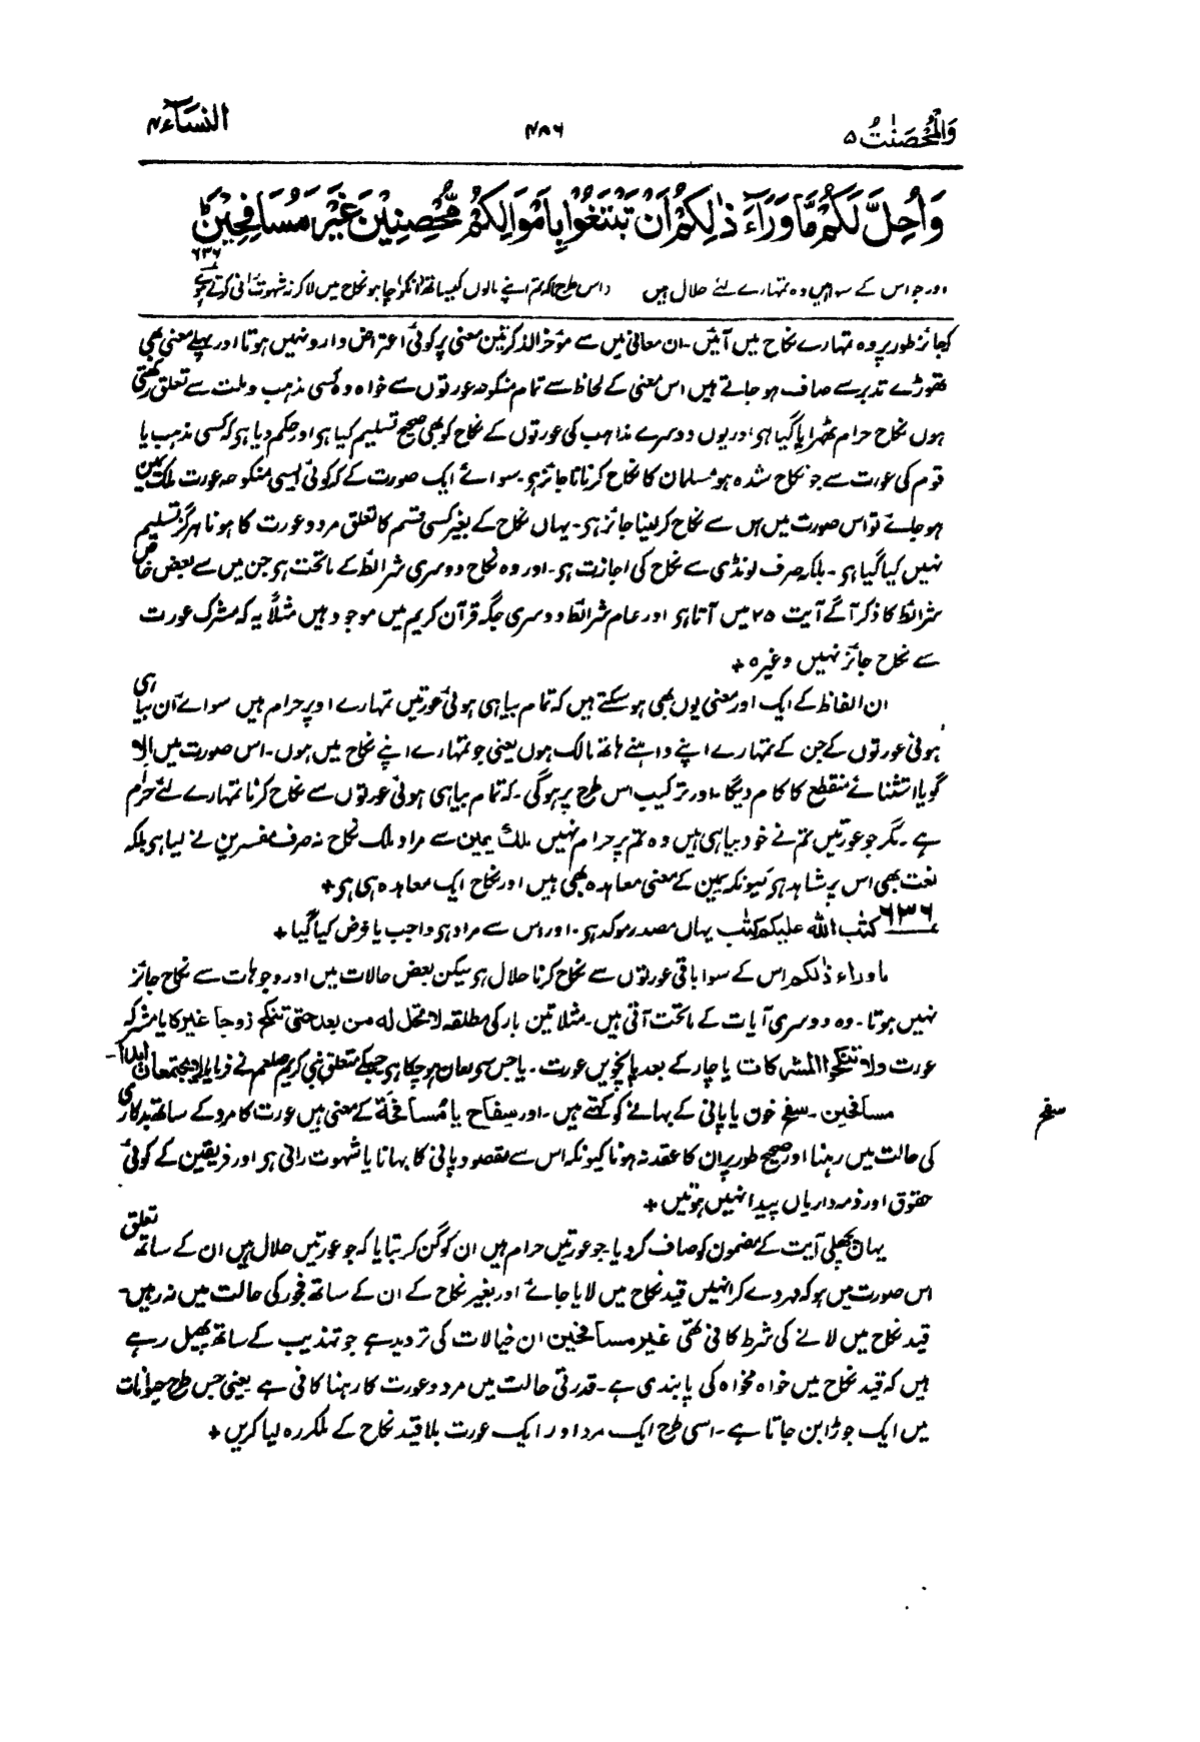 وَالْمُحْصَنٰتُ ۵
۴۸۶
النسآء ۴
وَاُحِلَّ لَكُمْ مَّا وَرَآءَ ذٰلِكُمْ اَنْ تَبْتَغُوْا بِاَمْوَالِكُمْ مُّحْصِنِیْنَ غَیْرَ مُسَافِحِیْنَ ؕ
۶۳۶
اور جو اس کے سوا ہیں وہ تمہارے لئے حلال ہیں (اس طرح) کہ تم اپنے مالوں کیساتھ انکو چاہو نکاح میں لاکر نہ شہوت رانی کرتے ہوئے
کہ جائز طور پر وہ تمہارے نکاح میں آئیں۔ ان معانی میں سے مؤخر الذکر تین معنی پر کوئی اعتراض وارد نہیں ہوتا اور پہلے معنی بھی
تھوڑے تدبر سے صاف ہو جاتے ہیں اس معنی کے لحاظ سے تمام منکوحہ عورتوں سے خواہ وہ کسی مذہب و ملت سے تعلق رکھتی
ہوں نکاح حرام ٹھہرایا گیا ہو اور یوں دوسرے مذاہب کی عورتوں کے نکاح کو بھی صحیح تسلیم کیا ہو اور حکم دیا ہو کہ کسی مذہب یا
قوم کی عورت سے جو نکاح شدہ ہو مسلمان کا نکاح کرنا ناجائز ہو۔ سوائے ایک صورت کے کہ کوئی ایسی منکوحہ عورت ملک یمین
ہو جائے تو اس صورت میں اس سے نکاح کر لینا جائز ہو۔ یہاں نکاح کے بغیر کسی قسم کا تعلق مرد و عورت کا ہونا ہرگز تسلیم
نہیں کیا گیا ہو۔ بلکہ صرف لونڈی سے نکاح کی اجازت ہو۔ اور وہ نکاح دوسری شرائط کے ماتحت ہو جن میں سے بعض خاص
شرائط کا ذکر آگے آیت ۲۵ میں آتا ہو اور عام شرائط دوسری جگہ قرآن کریم میں موجود ہیں مثلاً یہ کہ مشرک عورت
سے نکاح جائز نہیں وغیرہ +
ان الفاظ کے ایک اور معنی یوں بھی ہو سکتے ہیں کہ تمام بیاہی ہوئی عورتیں تمہارے اوپر حرام ہیں سوائے اُن بیاہی
ہوئی عورتوں کے جن کے تمہارے اپنے داہنے ہاتھ مالک ہوں یعنی جو تمہارے اپنے نکاح میں ہوں۔ اس صورت میں اِلّا
گویا استثنائے منقطع کا کام دیگا۔ اور ترکیب اس طرح پر ہوگی۔ کہ تمام بیاہی ہوئی عورتوں سے نکاح کرنا تمہارے لئے حرام
ہے۔ مگر جو عورتیں تم نے خود بیاہی ہیں وہ تم پر حرام نہیں ملک یمین سے مراد ملک نکاح نہ صرف مفسرین نے لیا ہو بلکہ
لغت بھی اس پر شاہد ہو کیونکہ یمین کے معنی معاہدہ بھی ہیں اور نکاح ایک معاہدہ ہی ہو +
۶۳۶ کتٰب اللہ علیکم کتٰب یہاں مصدر موکد ہو۔ اور اس سے مراد ہو واجب یا فرض کیا گیا +
ماوراء ذٰلکم اس کے سوا باقی عورتوں سے نکاح کرنا حلال ہو لیکن بعض حالات میں اور وجوہات سے نکاح جائز
نہیں ہوتا۔ وہ دوسری آیات کے ماتحت آتی ہیں۔ مثلا تین بار کی مطلقہ لا تحل لہ من بعد حتی تنکح زوجا غیرہ کا یا مشرکہ
عورت ولا تنکحوا المشرکات یا چار کے بعد پانچویں عورت۔ یا جس سے لعان ہو چکا ہو جسکے متعلق نبی کریم صلعم نے فرمایا لا یجتمعان ابداً۔
مسافحین۔ سفح خون یا پانی کے بہانے کو کہتے ہیں۔ اور سِفَاح یا مُسَافَحَة کے معنی ہیں عورت کا مرد کے ساتھ بدکاری
سفح
کی حالت میں رہنا اور صحیح طور پر ان کا عقد نہ ہونا کیونکہ اس سے مقصود پانی کا بہانا یا شہوت رانی ہو اور فریقین کے کوئی
حقوق اور ذمہ داریاں پیدا نہیں ہوتیں +
یہاں پچھلی آیت کے مضمون کو صاف کر دیا۔ جو عورتیں حرام ہیں ان کو گن کر بتایا کہ جو عورتیں حلال ہیں ان کے ساتھ تعلق
اس صورت میں ہو کہ مہر دے کر انہیں قید نکاح میں لایا جائے اور بغیر نکاح کے ان کے ساتھ فجور کی حالت میں نہ رہیں۔
قید نکاح میں لانے کی شرط کافی تھی غیر مسافحین ان خیالات کی تردید ہے جو تہذیب کے ساتھ پھیل رہے
ہیں کہ قید نکاح میں خواہ مخواہ کی پابندی ہے۔ قدرتی حالت میں مرد و عورت کا رہنا کافی ہے یعنی جس طرح حیوانات
میں ایک جوڑا بن جاتا ہے۔ اسی طرح ایک مرد اور ایک عورت بلا قید نکاح کے ملکر رہ لیا کریں +